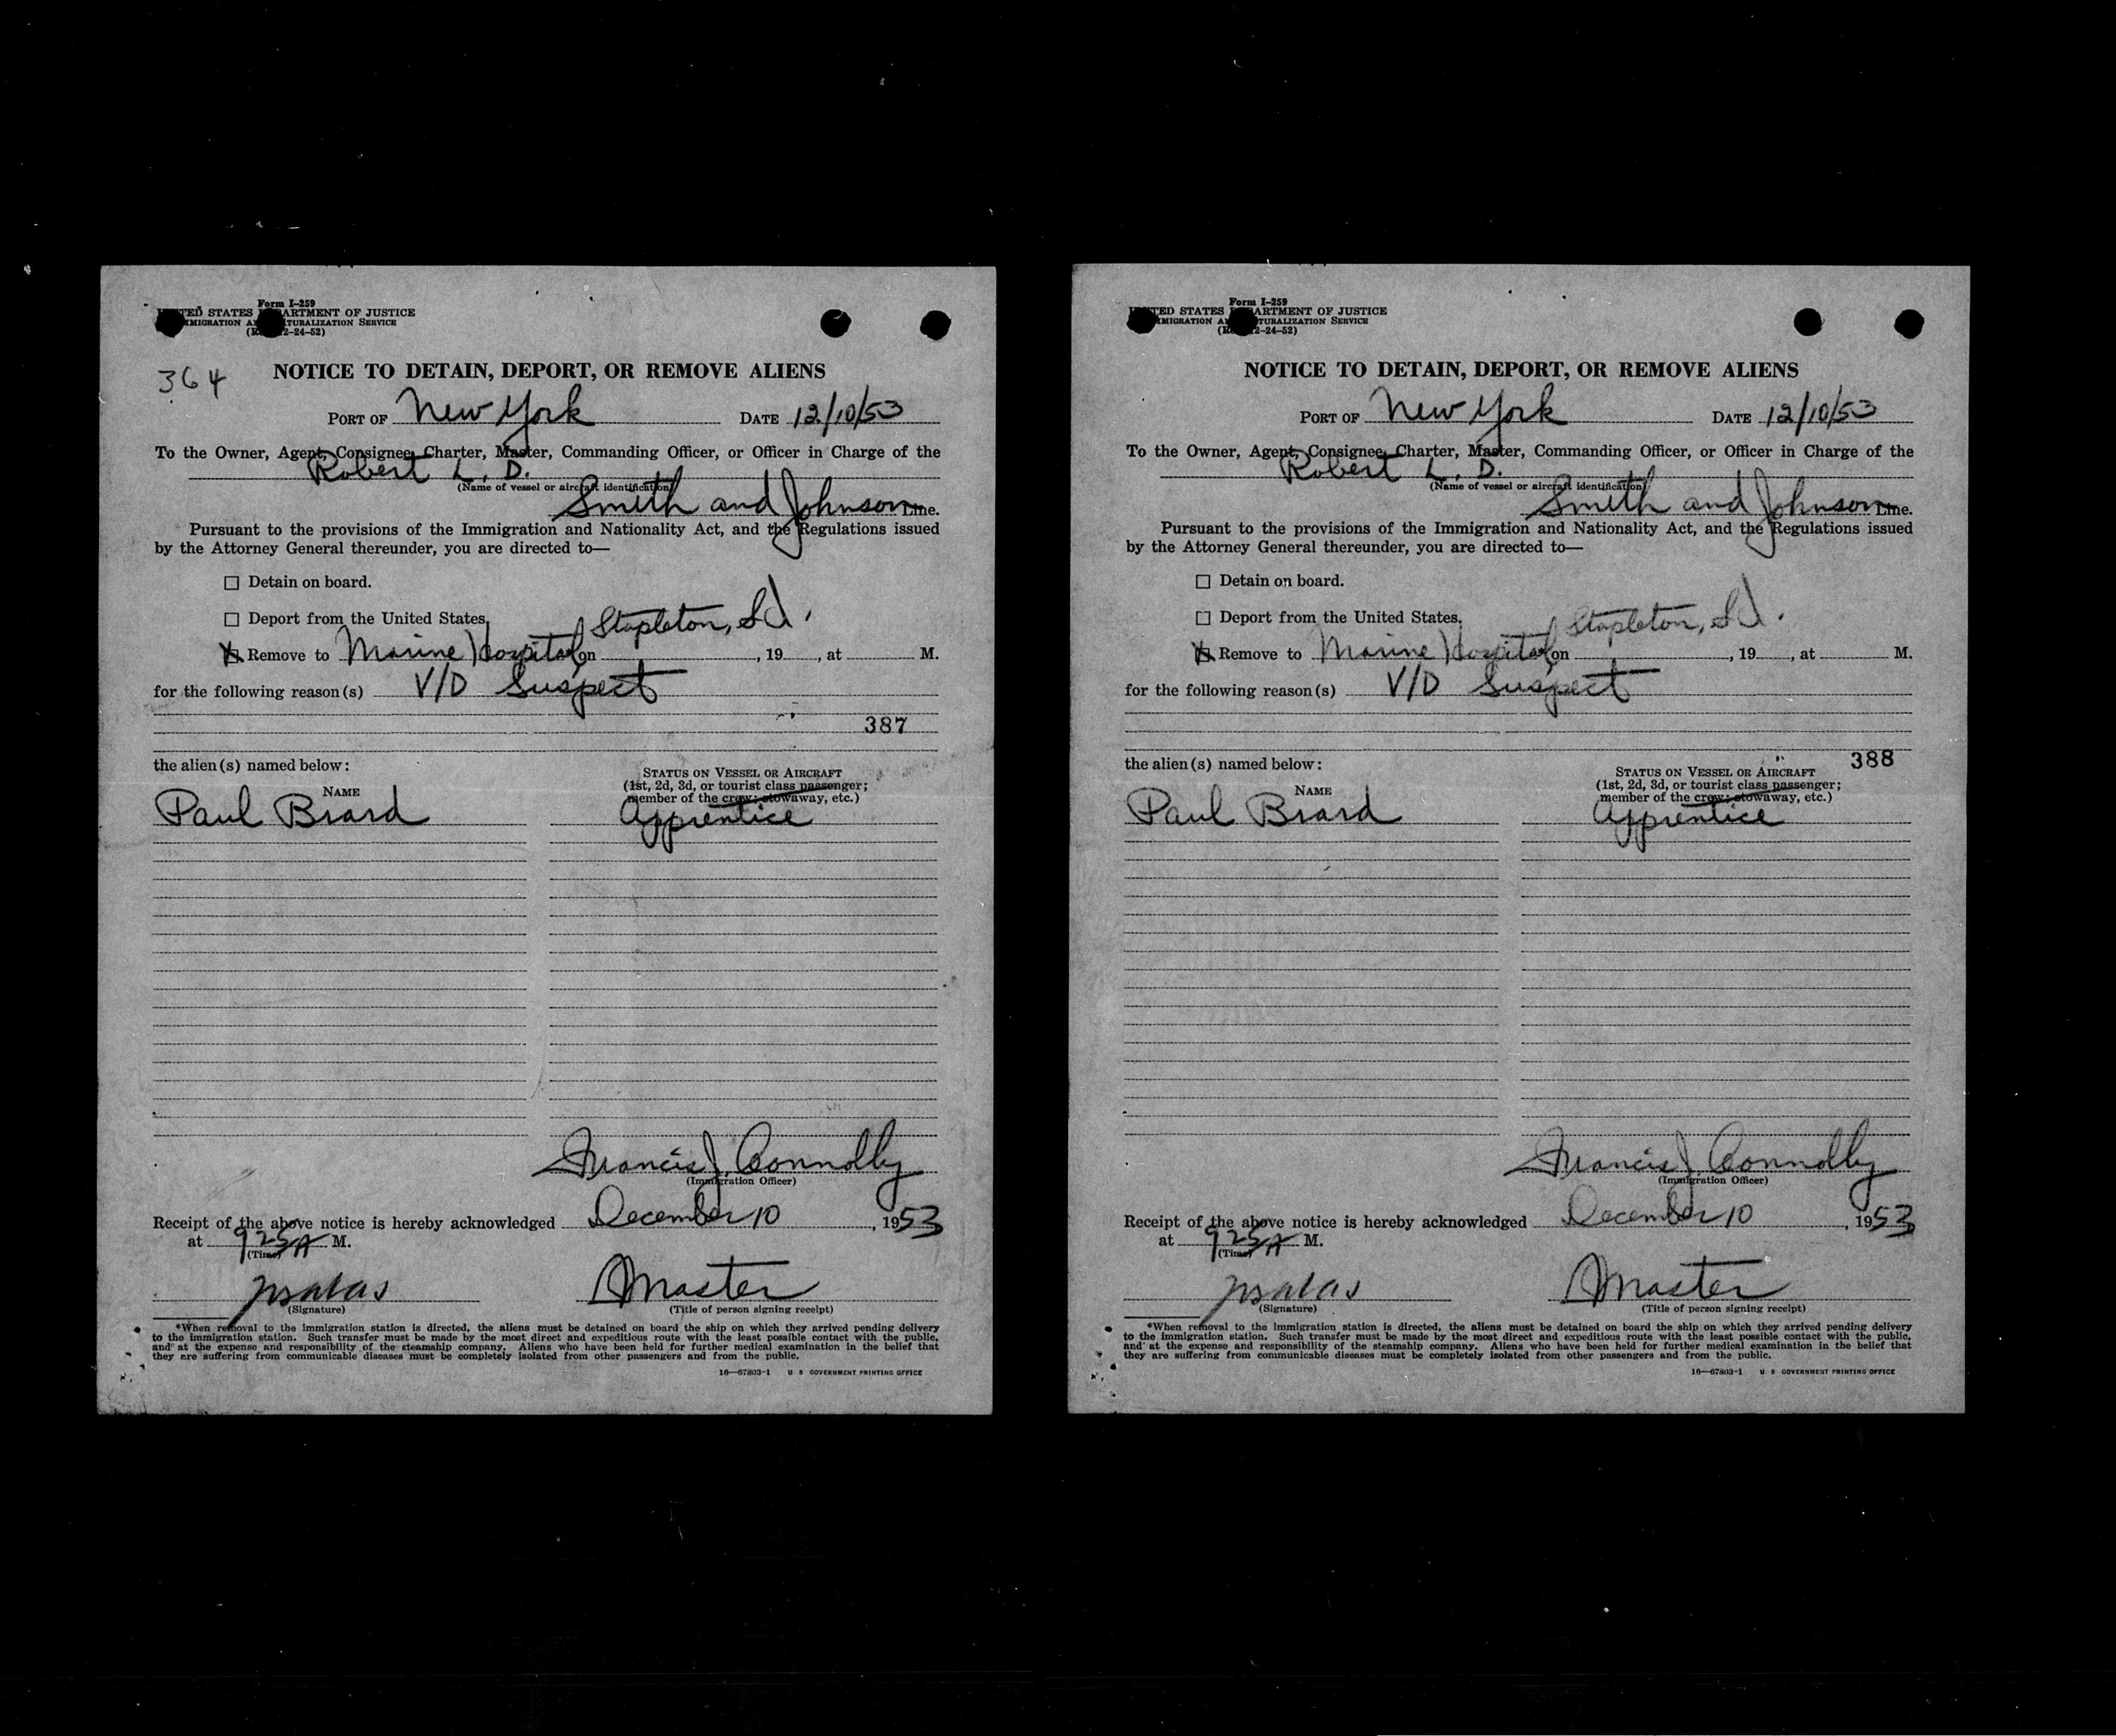 Form I-259
UNITED STATES DEPARTMENT OF JUSTICE
IMMIGRATION AND NATURALIZATION SERVICE
2-24-52)
364
NOTICE TO DETAIN, DEPORT, OR REMOVE ALIENS
PORT OF New York DATE 12/10/53
To the Owner, Agent, Consignee, Charter, Master, Commanding Officer, or Officer in Charge of the
Robert L. D.
(Name of vessel or aircraft identification)
Smith and Johnson Line.
Pursuant to the provisions of the Immigration and Nationality Act, and the Regulations issued
by the Attorney General thereunder, you are directed to—
☐ Detain on board.
☐ Deport from the United States.
Stapleton, S.I.
☒ Remove to Marine Hospital on , 19 , at M.
for the following reason(s) V/D Suspect
387
the alien(s) named below:
NAME
STATUS ON VESSEL OR AIRCRAFT
(1st, 2d, 3d, or tourist class passenger;
member of the crew; stowaway, etc.)
Paul Briard Apprentice
Francis J. Connolly
(Immigration Officer)
Receipt of the above notice is hereby acknowledged December 10, 1953
at 925 A M.
(Time)
Master
(Signature) (Title of person signing receipt)
*When removal to the immigration station is directed, the aliens must be detained on board the ship on which they arrived pending delivery
to the immigration station. Such transfer must be made by the most direct and expeditious route with the least possible contact with the public,
and at the expense and responsibility of the steamship company. Aliens who have been held for further medical examination in the belief that
they are suffering from communicable diseases must be completely isolated from other passengers and from the public.
16—67803-1 U S GOVERNMENT PRINTING OFFICE
Form I-259
UNITED STATES DEPARTMENT OF JUSTICE
IMMIGRATION AND NATURALIZATION SERVICE
2-24-52)
NOTICE TO DETAIN, DEPORT, OR REMOVE ALIENS
PORT OF New York DATE 12/10/53
To the Owner, Agent, Consignee, Charter, Master, Commanding Officer, or Officer in Charge of the
Robert L. D.
(Name of vessel or aircraft identification)
Smith and Johnson Line.
Pursuant to the provisions of the Immigration and Nationality Act, and the Regulations issued
by the Attorney General thereunder, you are directed to—
☐ Detain on board.
☐ Deport from the United States.
Stapleton, S.I.
☒ Remove to Marine Hospital on , 19 , at M.
for the following reason(s) V/D Suspect
388
the alien(s) named below:
NAME
STATUS ON VESSEL OR AIRCRAFT
(1st, 2d, 3d, or tourist class passenger;
member of the crew; stowaway, etc.)
Paul Briard Apprentice
Francis J. Connolly
(Immigration Officer)
Receipt of the above notice is hereby acknowledged December 10, 1953
at 925 A M.
(Time)
Master
(Signature) (Title of person signing receipt)
*When removal to the immigration station is directed, the aliens must be detained on board the ship on which they arrived pending delivery
to the immigration station. Such transfer must be made by the most direct and expeditious route with the least possible contact with the public,
and at the expense and responsibility of the steamship company. Aliens who have been held for further medical examination in the belief that
they are suffering from communicable diseases must be completely isolated from other passengers and from the public.
16—67803-1 U S GOVERNMENT PRINTING OFFICE